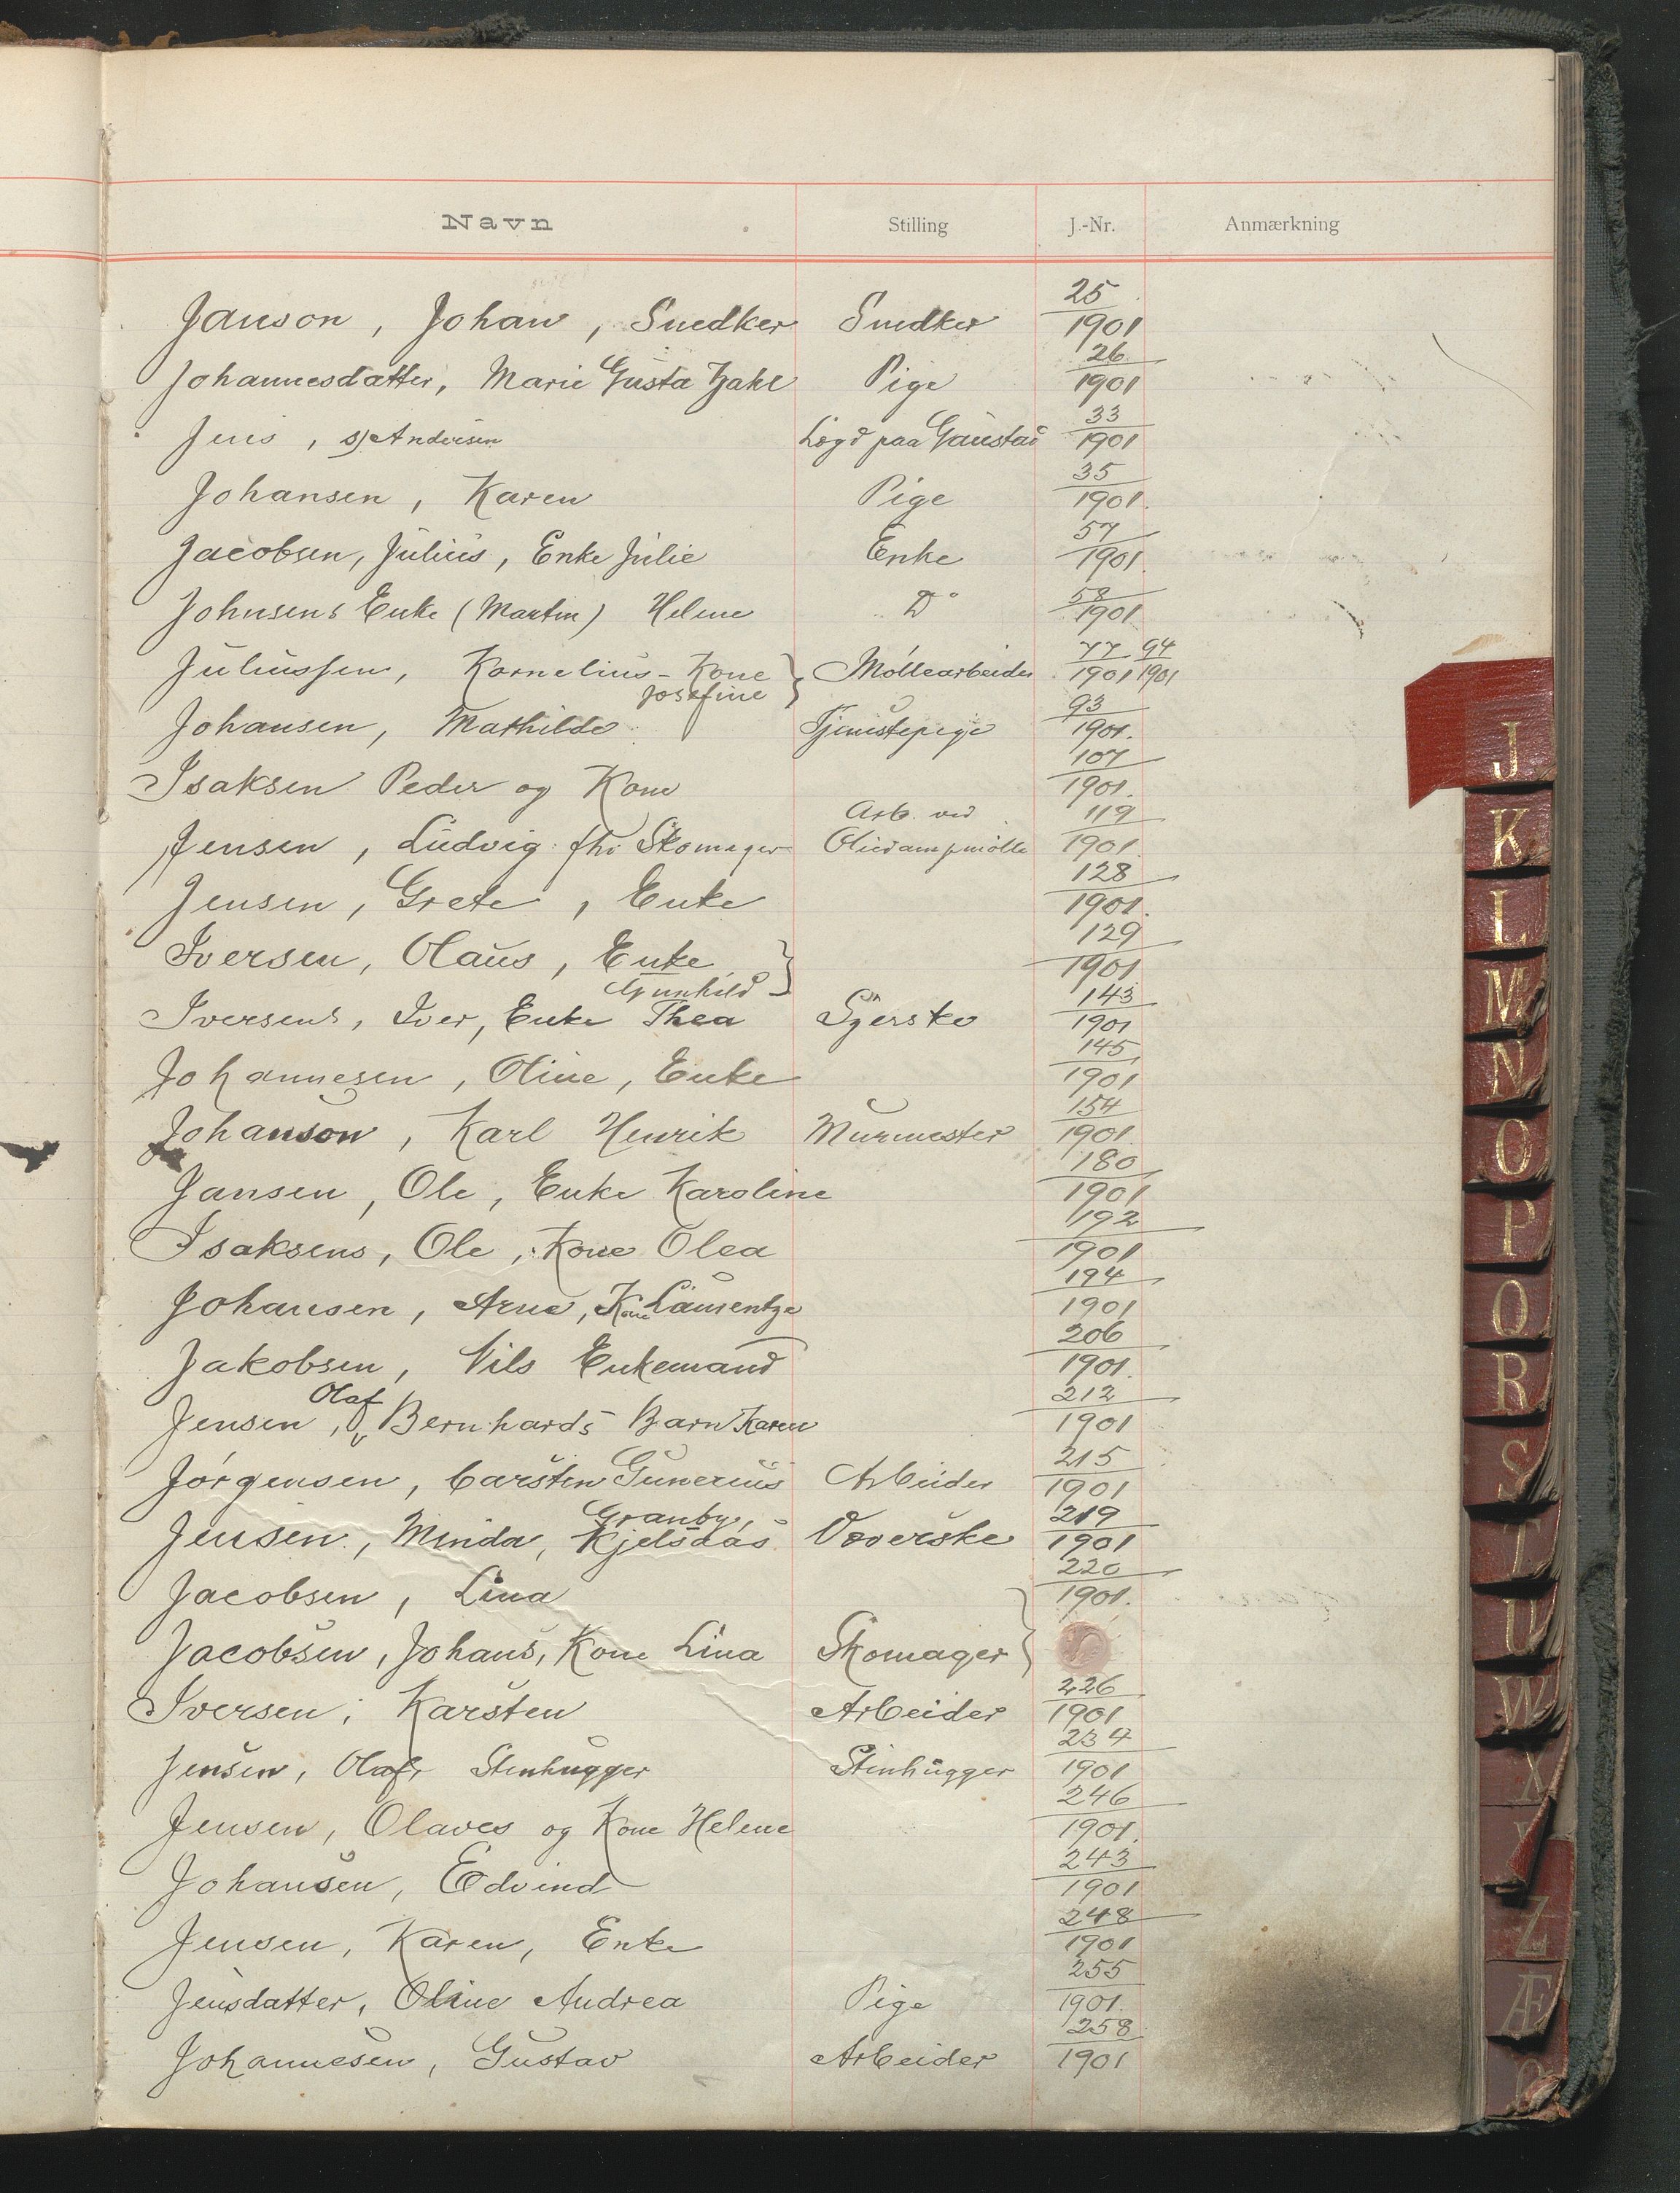 Navn Stilling J.-Nr. Anmærkning
Janson, Johan, Snedker Snedker 25/1901
Johannesdatter, Marie Gusta Pige 26/1901
Jens, s) Andersen Lægd paa Gaustad 33/1901
Johansen, Karen Pige 35/1901
Jacobsen, Julius, Enke Julie Enke 57/1901
Johnsens Enke (Martin) Helene Do 58/1901
Juliussen, Kornelius - Kone Josefine } Møllearbeider 77/1901 94/1901
Johansen, Mathilde Tjenistepige 93/1901
Isaksen Peder og Kone 107/1901
Jensen, Ludvig fhv Skomager Arb. ved Oliedampmølle 119/1901
Jensen, Grete, Enke 128/1901
Iversen, Olaus, Enke Gunhild } 129/1901
Iversens, Iver, Enke Thea Syerske 143/1901
Johannesen, Oline, Enke 145/1901
Johanson, Karl Henrik Murmester 154/1901
Jansen, Ole, Enke Karoline 180/1901
Isaksens, Ole, Kone Olea 192/1901
Johansen, Arne, Kone Laurentze 194/1901
Jakobsen, Nils Enkemand 206/1901
Jensen, Olaf Bernhards Barn Karen 212/1901
Jørgensen, Carsten Gunerius Arbeider 215/1901
Jensen, Minda, Granby, Kjelsaas Væverske 219/1901
Jacobsen, Lina 220/1901
Jacobsen, Johans, Kone Lina Skomager }
Iversen, Karsten Arbeider 226/1901
Jensen, Olaf, Stenhugger Stenhugger 234/1901
Jensen, Olaves og Kone Helene 246/1901
Johansen, Edvind 243/1901
Jensen, Karen, Enke 248/1901
Jensdatter, Oline Andrea Pige 255/1901
Johannesen, Gustav Arbeider 258/1901
J
K
L
M
N
O
P
Q
R
S
T
U
W
X
Z
Æ